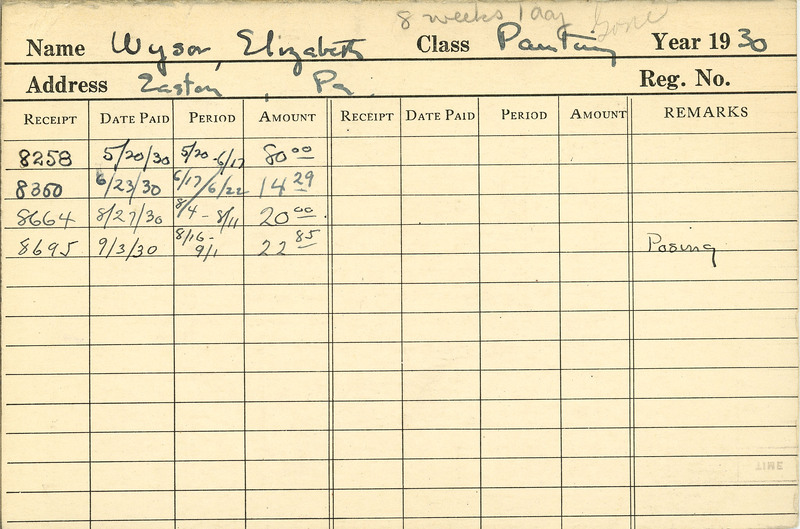 8 weeks 1 day Gone
Name Wysor, Elizabeth Class Painting Year 1930
Address Easton, Pa. Reg. No.
RECEIPT DATE PAID PERIOD AMOUNT RECEIPT DATE PAID PERIOD AMOUNT REMARKS
8258 5/20/30 5/20-6/17 80 00
8360 6/23/30 6/17/6/22 14 29
8664 8/27/30 8/4-8/11 20 00
8695 9/3/30 8/16-9/1 22 85 Posing